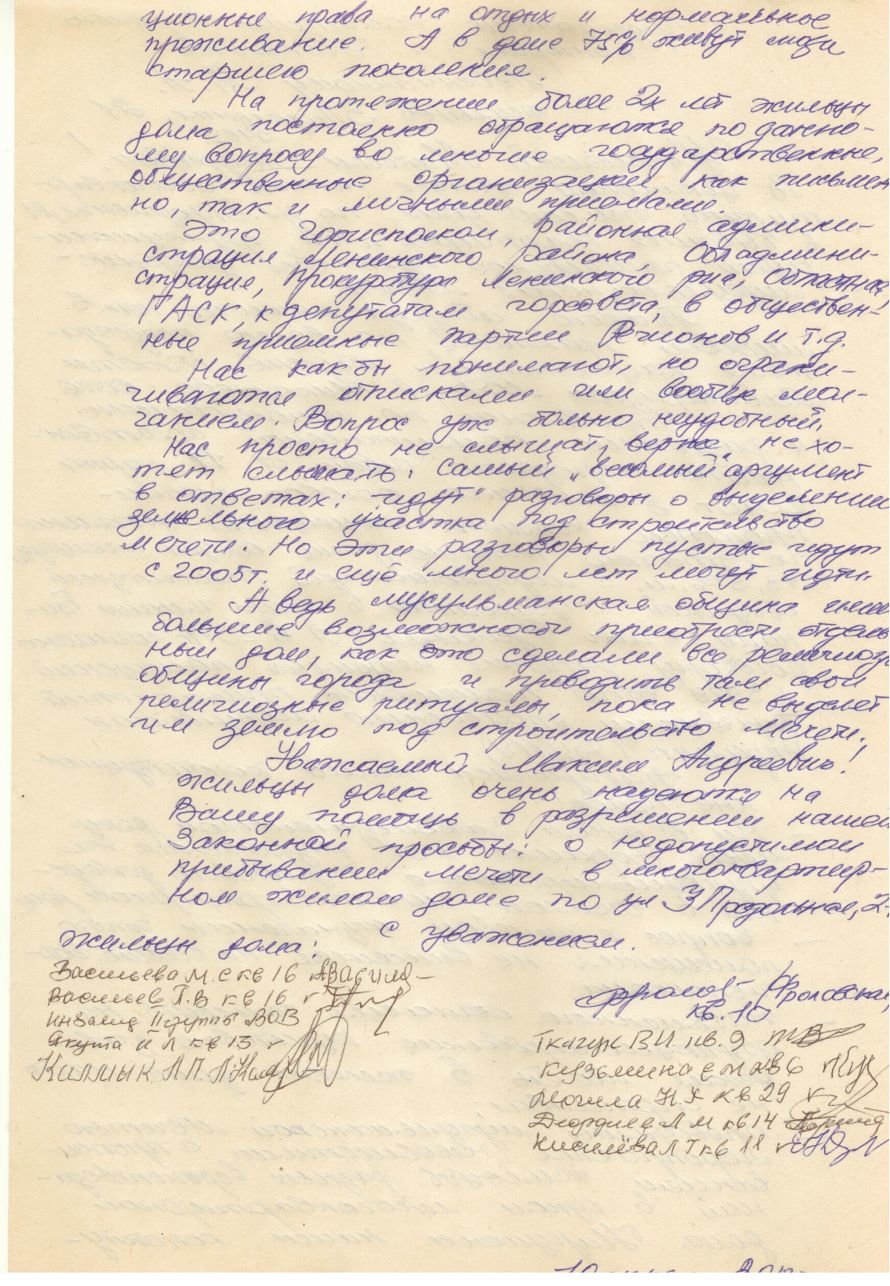 ционные права на отдых и нормальное
проживание. А в доме 75% живут люди
старшего поколения.
На протяжении более 2х лет жильцы
дома постоянно обращаются по данно-
му вопросу во многие государственные,
общественные организации, как письмен
но, так и личными приёмами.
Это Горисполком, районная админи-
страция Ленинского района, Обладмини-
страция, Прокуратура Ленинского р-на, Областная
ГАСК к депутатам горсовета, в обществен-
ные приемные партии Регионов и т.д.
Нас как бы понимают, но ограни-
чиваются отписками или вообще мол-
чанием. Вопрос уж больно неудобный.
Нас просто не слышат, вернее не хо-
тят слышать. Самый "весомый" аргумент
в ответах: "идут" разговоры о выделении
земельного участка под строительство
мечети. Но эти разговоры пустые идут
с 2005г. и ещё много лет могут идти.
А ведь мусульманская община имее
большие возможности приобрести отдель
ный дом, как это сделали все религиоз
общины города и проводить там свои
религиозные ритуалы, пока не выделят
им землю под строительство Мечети.
Уважаемый Максим Андреевич!
Жильцы дома очень надеются на
Вашу помощь в разрешении нашей
Законной просьбы: о недопустимом
прибывании мечети в многоквартир-
ном жилом доме по ул 3 Продольная, 2
Жильцы дома: С уважением.
Васильева М.С кв 16
Васильев П.В кв 16
инвалид II группы ВОВ
кв 13
Калмык Л.П.
Фроловская
кв. 10
Ткачук В.И. кв. 9
Кузьмина Е М кв 6
Могила Н Х кв 29
Л М кв 14
Киселёва Л Т кв 11